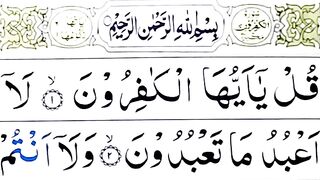 بِسْمِ اللهِ الرَّحْمٰنِ الرَّحِيْمِ
قُلْ يٰٓاَيُّهَا الْكٰفِرُوْنَ ۙ﴿۱﴾ لَاۤ
اَعْبُدُ مَا تَعْبُدُوْنَ ۙ﴿۲﴾ وَلَاۤ اَنْتُمْ